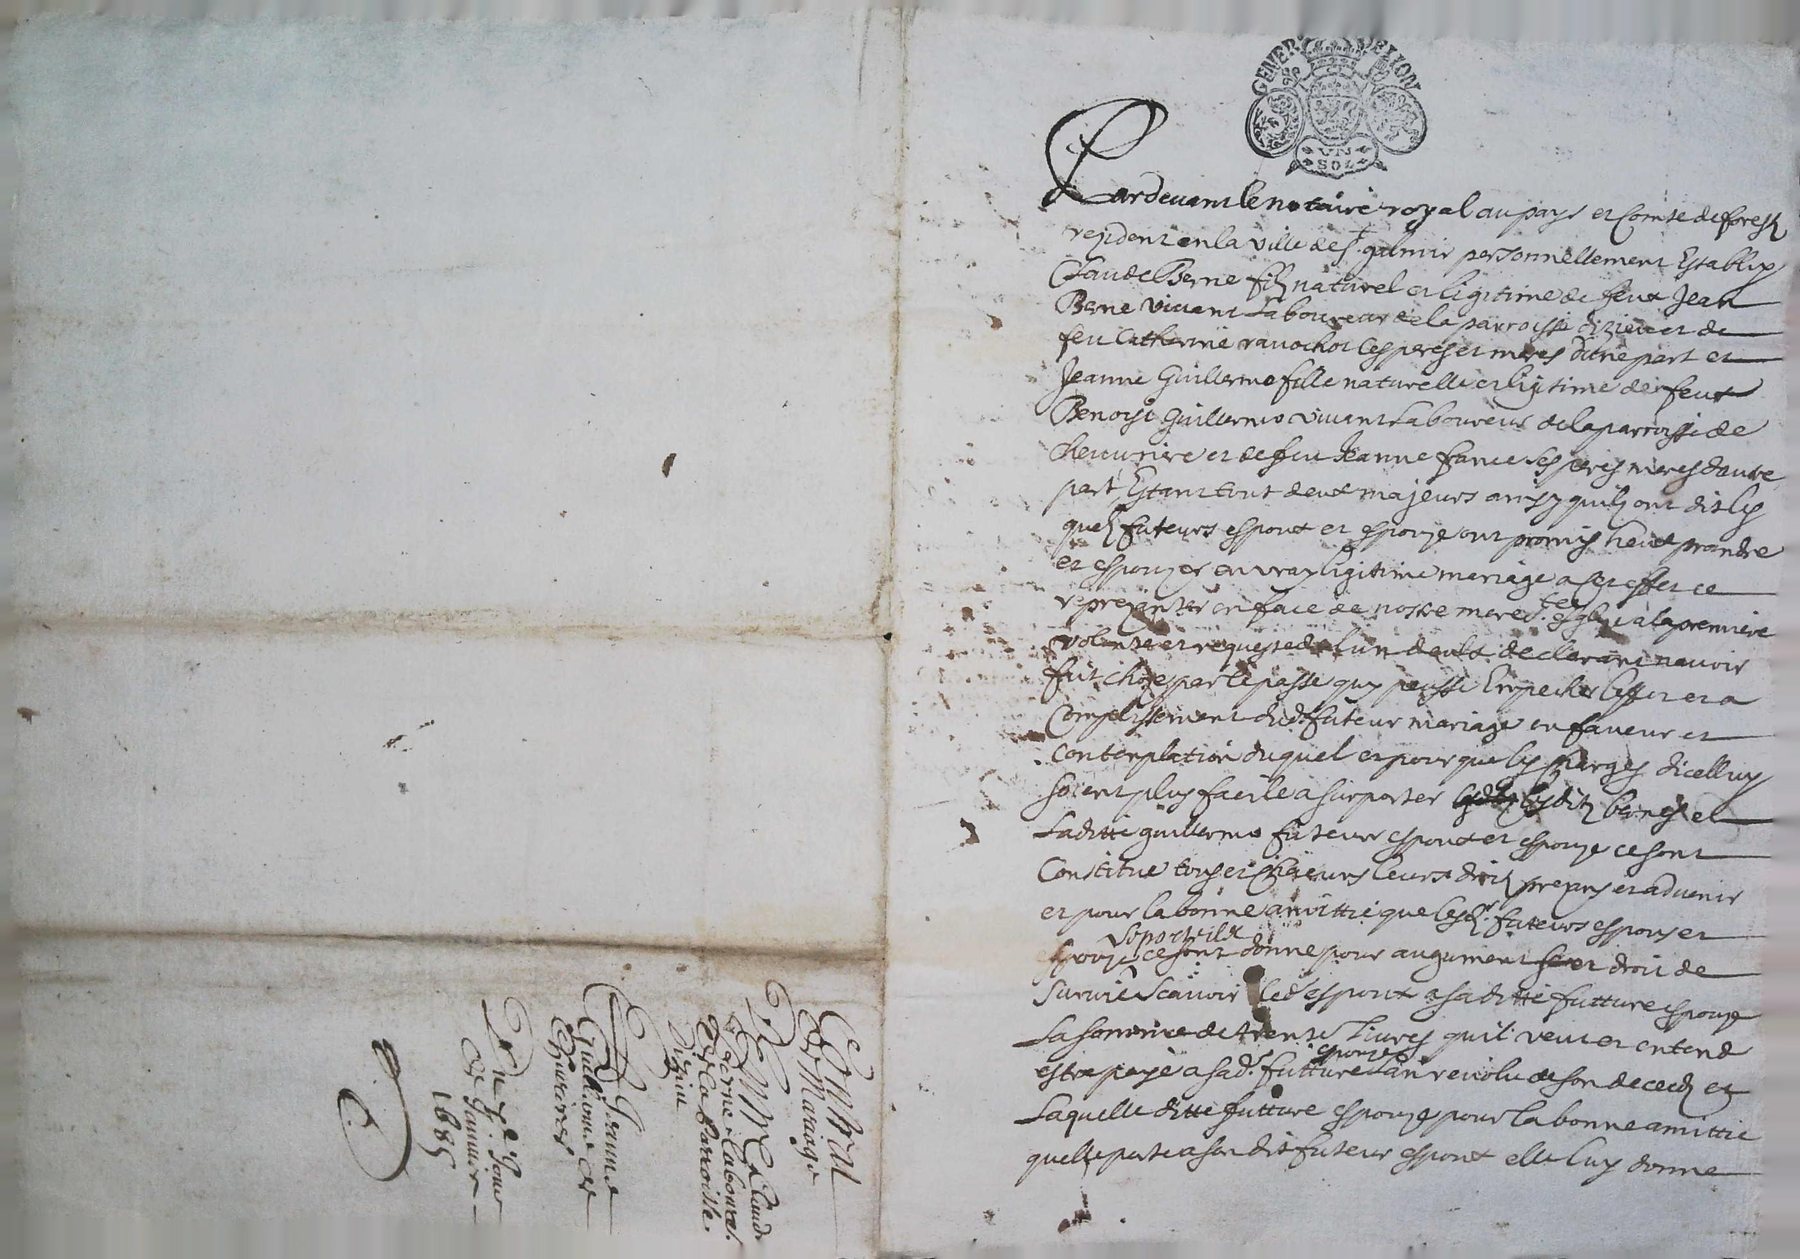 GENER
UN
SOL
Pardevant le notaire royal au pays et Comte de forest
resident en la ville de St galmier personnellement Establis
Claude Berne filz naturel et ligitime de feut Jean
Berne vivant Laboureur de la parroisse et de
feu Catherine ses peres et meres dune part et
Jeanne Guillermo fille naturelle et ligitime de feut
Benoist Guillermo vivant Laboureur de la parroisse de
Chevrire et de feu Jeanne france ses peres meres dautre
part Estant tout deut majeurs ainsy quilz ont dit les
quelz futeurs espout et espouze ont promis heut prandre
et espouzer en vray ligitime mariage a set effet ce
reprezanter en face de nostre mere ste esglize a la premiere
volonte et requeste de lun deulx declarant navoir
fait choze par le passe quy peusse Empecher leffet et a
Complissement dud. futeur mariage en faveur et
contemplation duquel et pour que les charges dicelluy
soient plus facile a surporter lesdits berne et
Laditte guillermo futeurs espout et espouze ce sont
Constitue tous et chacuns leurs droitz et advenir
et pour la bonne amittie que lesd. futeurs espoux et
espouze ce sont donne pour augument et droit de
survie Scavoir led. espout a saditte future espouze
La somme de trente Livres quil veut et entend
estre paye a sad. future espouze lan revolu de son decedz et
Laquelle ditte future espouze pour la bonne amittie
quelle porte a son dit futeur espout elle luy donne
Contrat
de Mariage
De Mre Claude
Berne Laboure.
de la parroisse
Et Jeanne
Guillome de
Chevrires
Du 2e Jour
de Janvier
1685